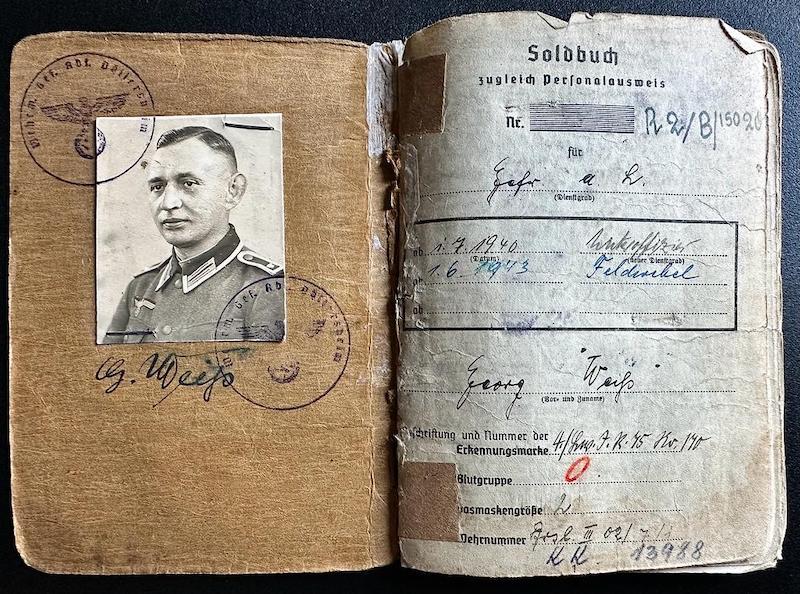 G. Weiß
Soldbuch
zugleich Personalausweis
Nr. R 2/B/150 20
für
Gefr a L.
(Dienstgrad)
ab 1.7.1940 Unteroffizier
(Datum) (neuer Dienstgrad)
1.6.1943 Feldwebel
ab
Georg Weiß
(Vor- und Zuname)
schriftung und Nummer der
Erkennungsmarke 4./ J.R. 45 Nr. 140
Blutgruppe O
asmaskengröße 2
Wehrnummer III 02/7/
13988